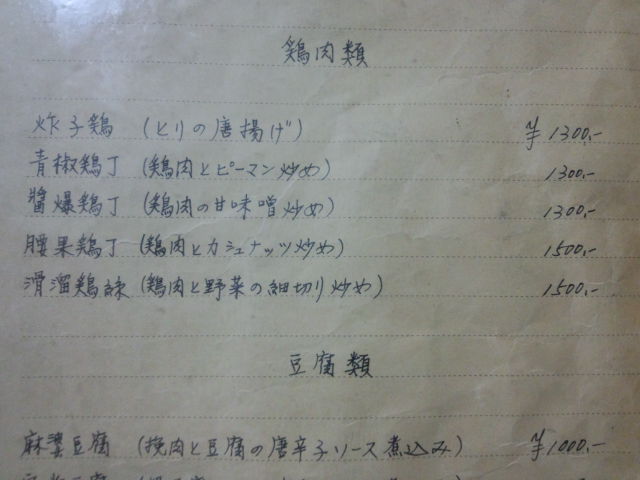 鶏肉類
炸子鶏 (とりの唐揚げ) ¥1300.-
青椒鶏丁 (鶏肉とピーマン炒め) 1300.-
醤爆鶏丁 (鶏肉の甘味噌炒め) 1300.-
腰果鶏丁 (鶏肉とカシュナッツ炒め) 1500.-
滑溜鶏絲 (鶏肉と野菜の細切り炒め) 1500.-
豆腐類
麻婆豆腐 (挽肉と豆腐の唐辛子ソース煮込み) ¥1000.-